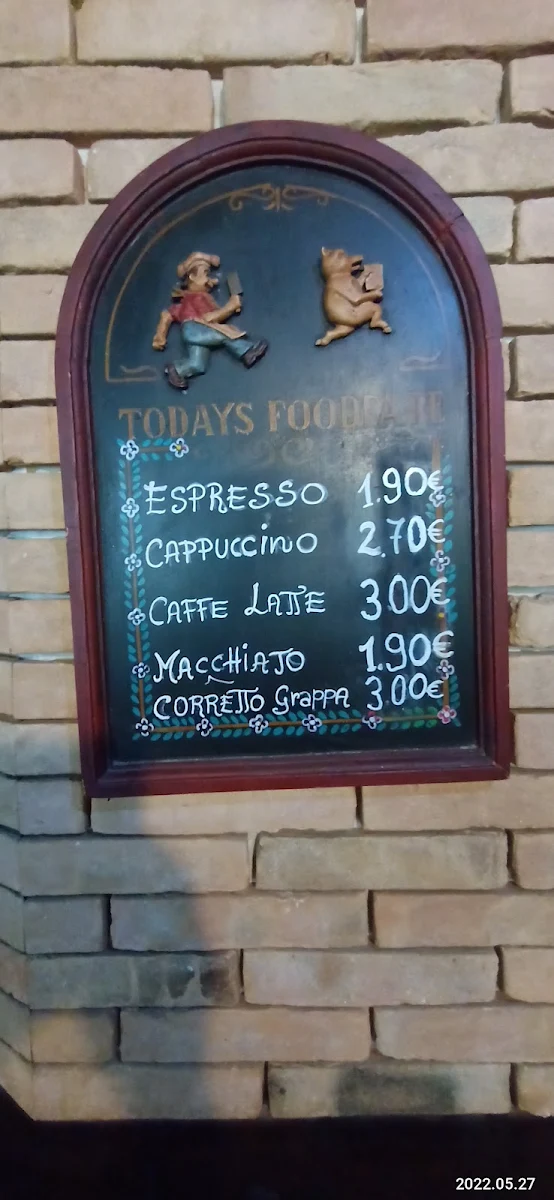 TODAYS
ESPRESSO 1.90€
CAPPUCCINO 2.70€
CAFFE LATTE 3.00€
MACCHIATO 1.90€
CORRETTO Grappa 3.00€
2022.05.27